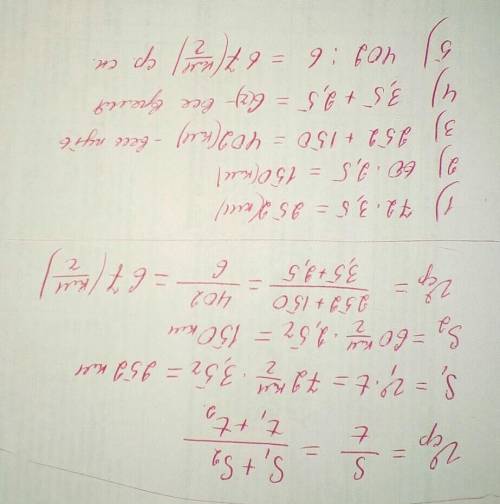 υср = S/t = (S₁ + S₂)/(t₁ + t₂)
S₁ = υ₁·t₁ = 72 км/ч · 3,5ч = 252 км
S₂ = 60 км/ч · 2,5ч = 150 км
υср = (252 + 150)/(3,5 + 2,5) = 402/6 = 67 (км/ч)
1) 72 · 3,5 = 252 (км)
2) 60 · 2,5 = 150 (км)
3) 252 + 150 = 402 (км) - весь путь
4) 3,5 + 2,5 = 6(ч) - все время
5) 402 : 6 = 67 (км/ч) ср ск.